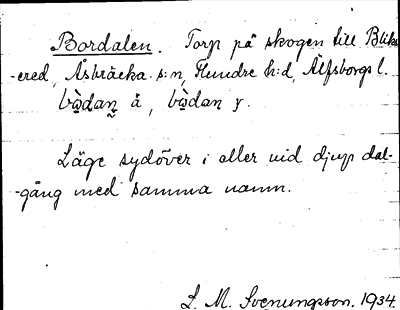 Bordalen. Torp på skogen till Bliks-
-ered, Åsbräcka s:n, Flundre h:d, Älfsborgs l.
bò̱dan̰ å, bò̱dan y.
Läge sydöver i eller vid djup dal-
-gång med samma namn.
L. M. Svenungsson. 1934.